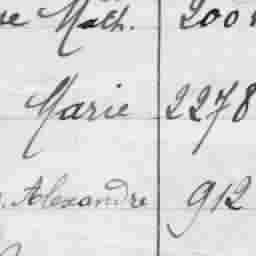 se Math. 200
Marie 2278
Alexandre 912